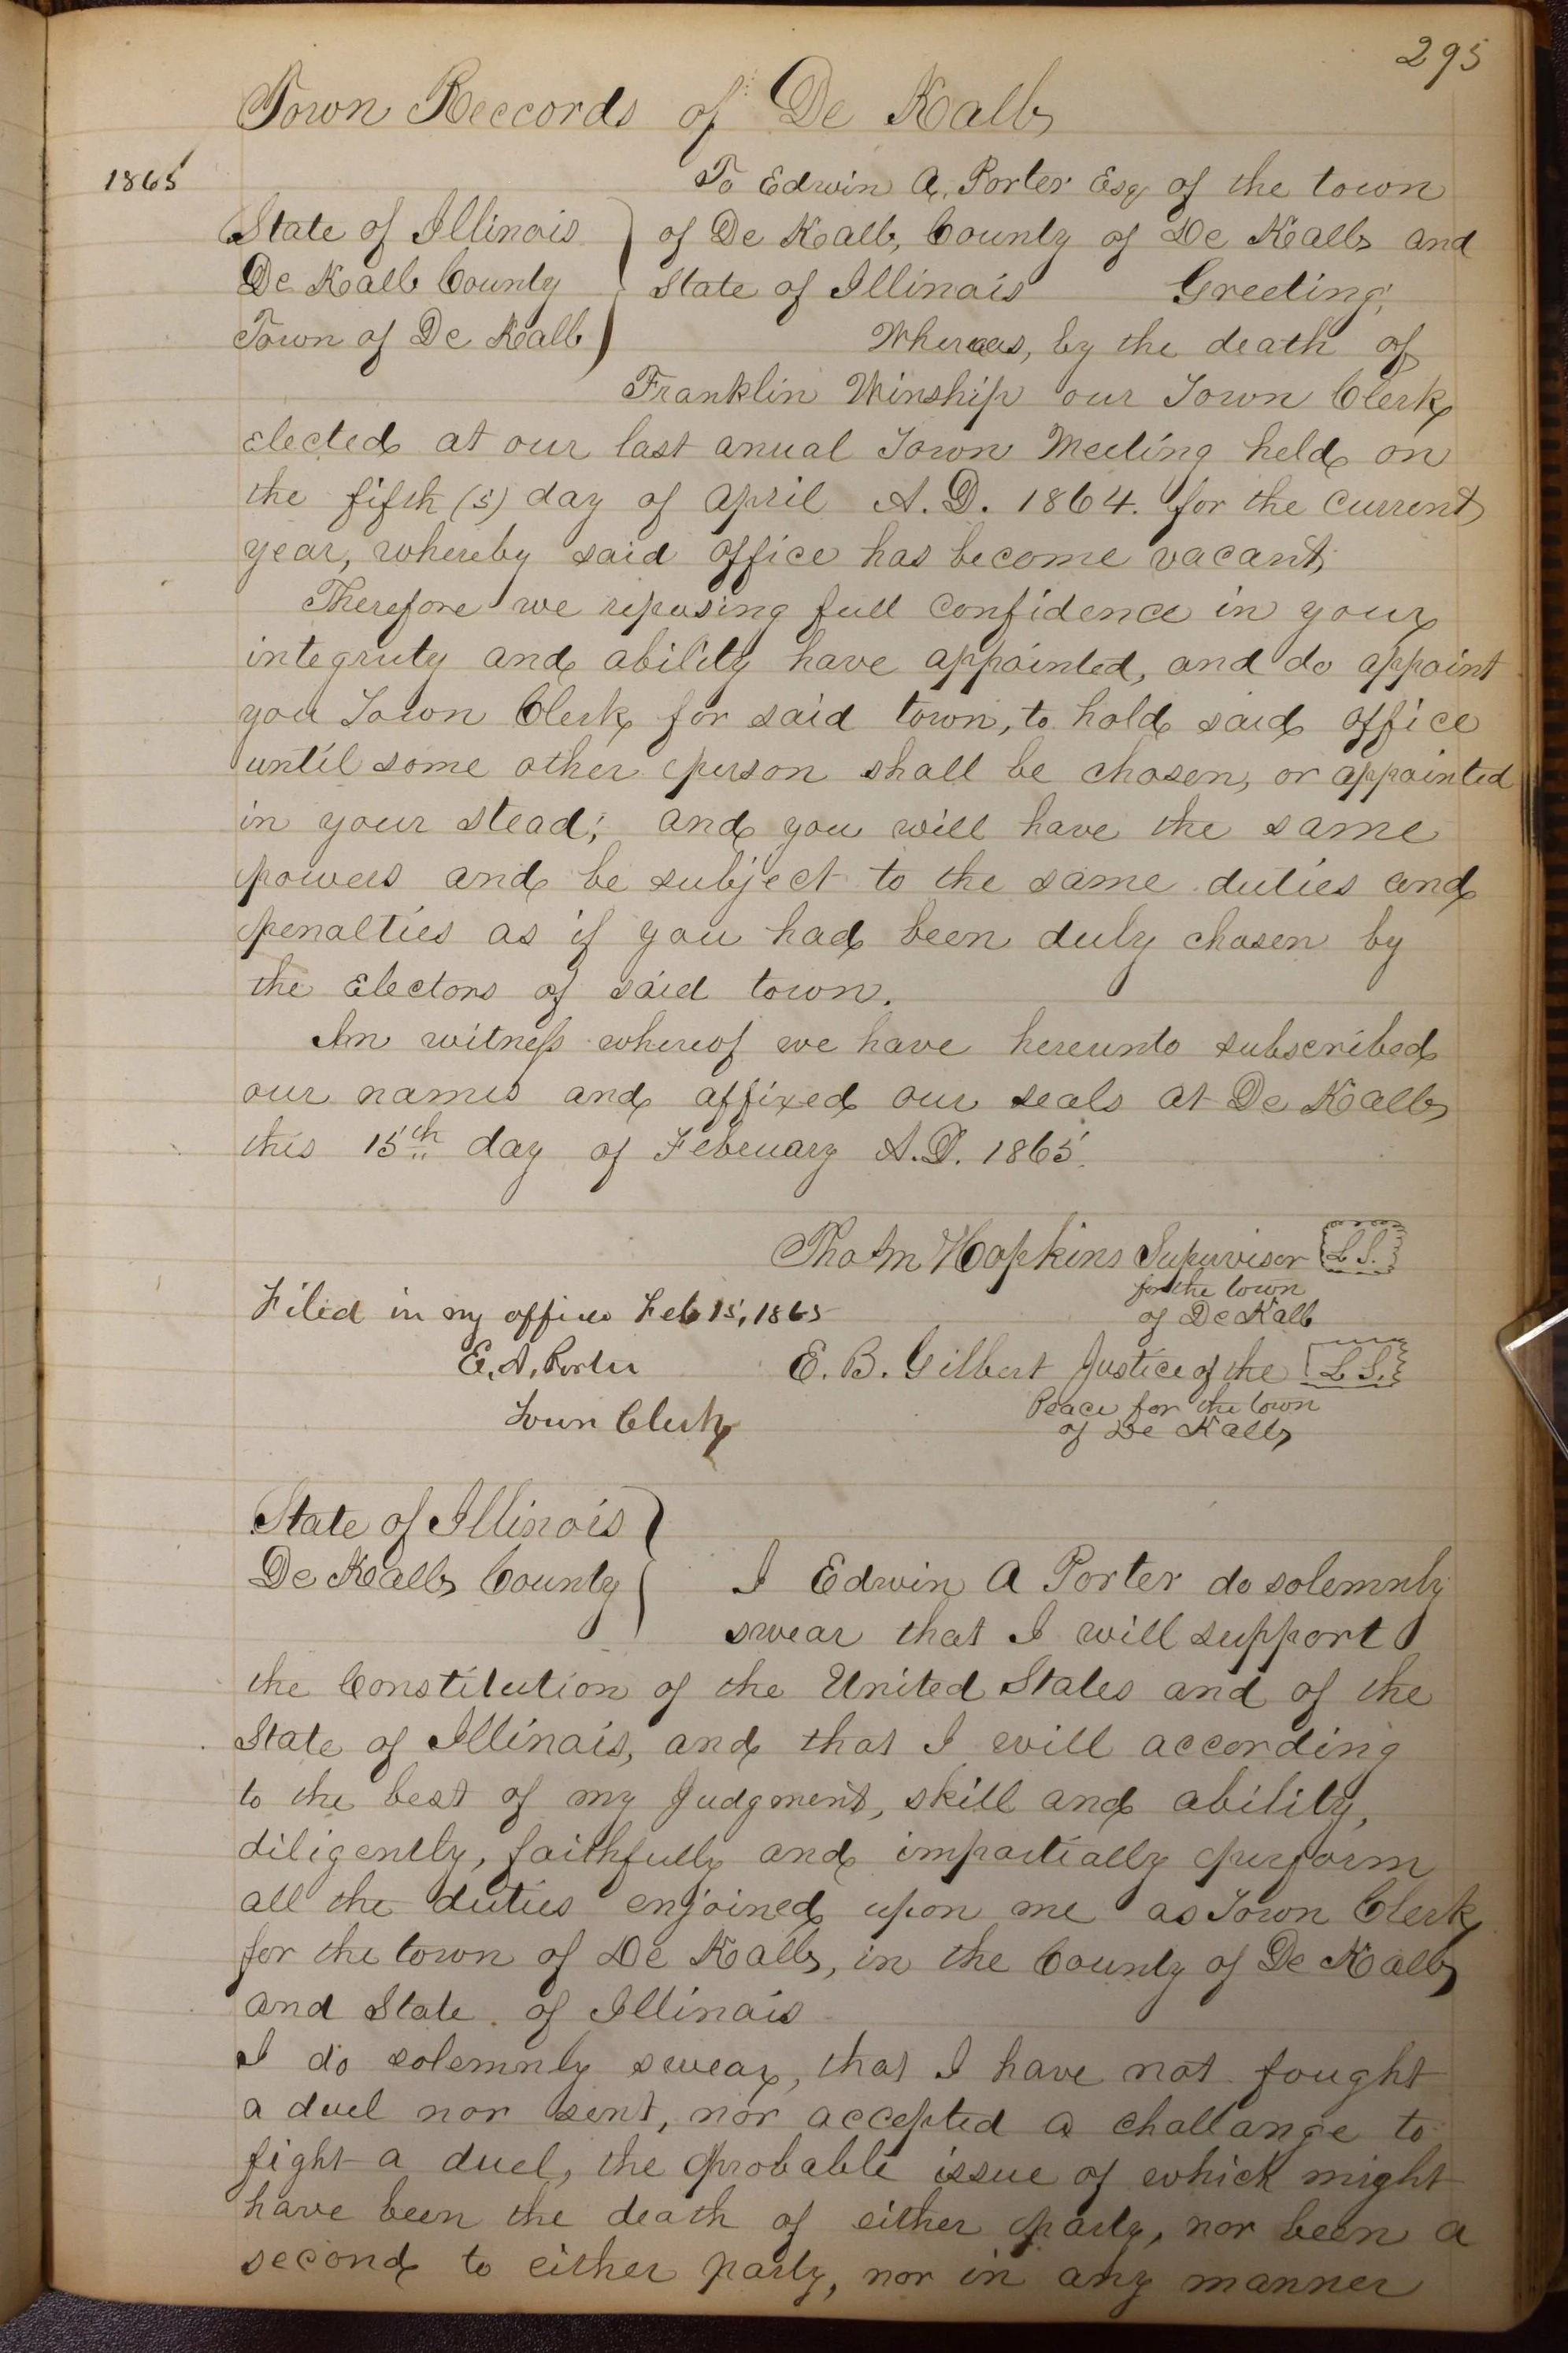 295
Town Reccords of De Kalb
1865
To Edwin A. Porter Esq of the town
State of Illinois of De Kalb, County of De Kalb and
De Kalb County State of Illinois Greeting,
Town of De Kalb Whereas, by the death of
Franklin Winship our Town Clerk
elected at our last anual Town Meeting held on
the fifth (5) day of April A.D. 1864. for the current
year, whereby said office has become vacant,
Therefore we reposing full confidence in your
integruty and ability have appointed, and do appoint
you Town Clerk for said town, to hold said office
until some other person shall be chosen, or appointed
in your stead; and you will have the same
powers and be subject to the same duties and
penalties as if you had been duly chosen by
the Electors of said town.
In witness whereof we have hereunto subscribed
our names and affixed our seals at De Kalb
this 15th day of Febeuary A.D. 1865.
Tho M Hopkins Supervisor L S.
for the town
of De Kalb
Filed in my office Feb 15, 1865
E. A. Porter
Town Clerk
E. B. Gilbert Justice of the L S.
Peace for the town
of De Kalb
State of Illinois
De Kalb County I Edwin A Porter do solemnly
swear that I will support
the Constitution of the United States and of the
State of Illinois, and that I will according
to the best of my Judgment, skill and ability,
diligently, faithfully and impartially perform
all the duties enjoined upon me as Town Clerk
for the town of De Kalb, in the County of De Kalb
and State of Illinois
I do solemnly swear, that I have not fought
a duel nor sent, nor accepted a challange to
fight a duel, the probable issue of which might
have been the death of either party, nor been a
second to either party, nor in any manner